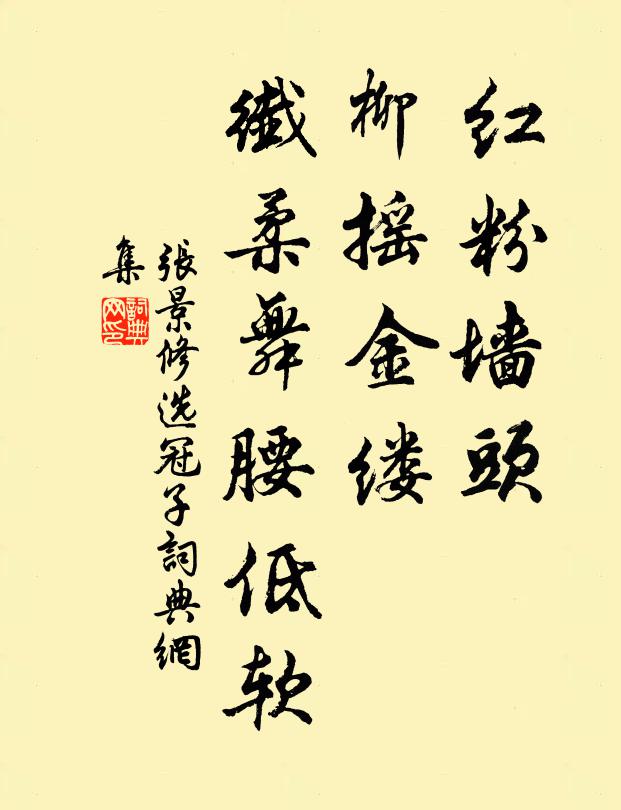 红粉墙头
柳摇金缕
纖柔舞腰低软
張景修选冠子詞典網
集
詞典
网印